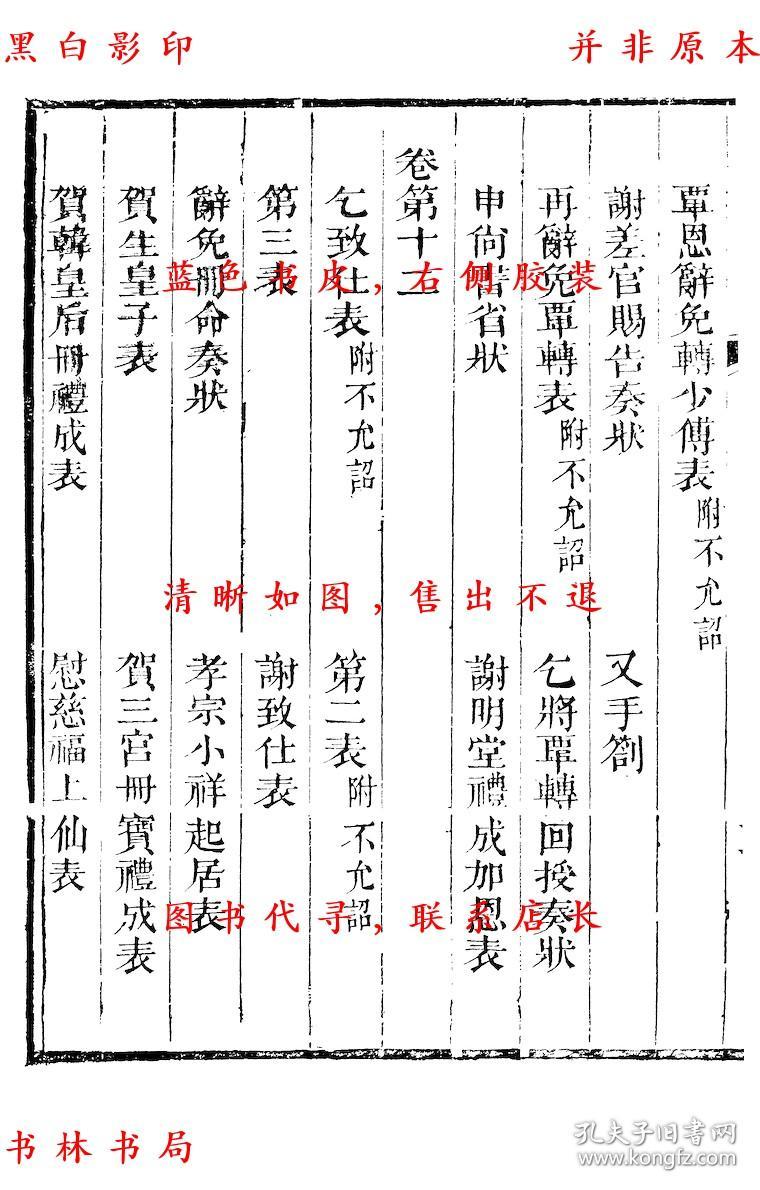 黑白影印
并非原本
覃恩辭免轉少傅表附不允詔
謝差官賜告奏狀 又手劄
再辭免覃轉表附不允詔 乞將覃轉回授奏狀
申尙書省狀 謝明堂禮成加恩表
卷第十二
乞致仕表附不允詔 第二表附不允詔
第三表 謝致仕表
辭免冊命奏狀 孝宗小祥起居表
賀生皇子表 賀三宮冊寶禮成表
賀韓皇后冊禮成表 慰慈福上仙表
蓝色书皮，右侧胶装
清晰如图，售出不退
图书代寻，联系店长
书林书局
孔夫子旧书网
www.kongfz.com